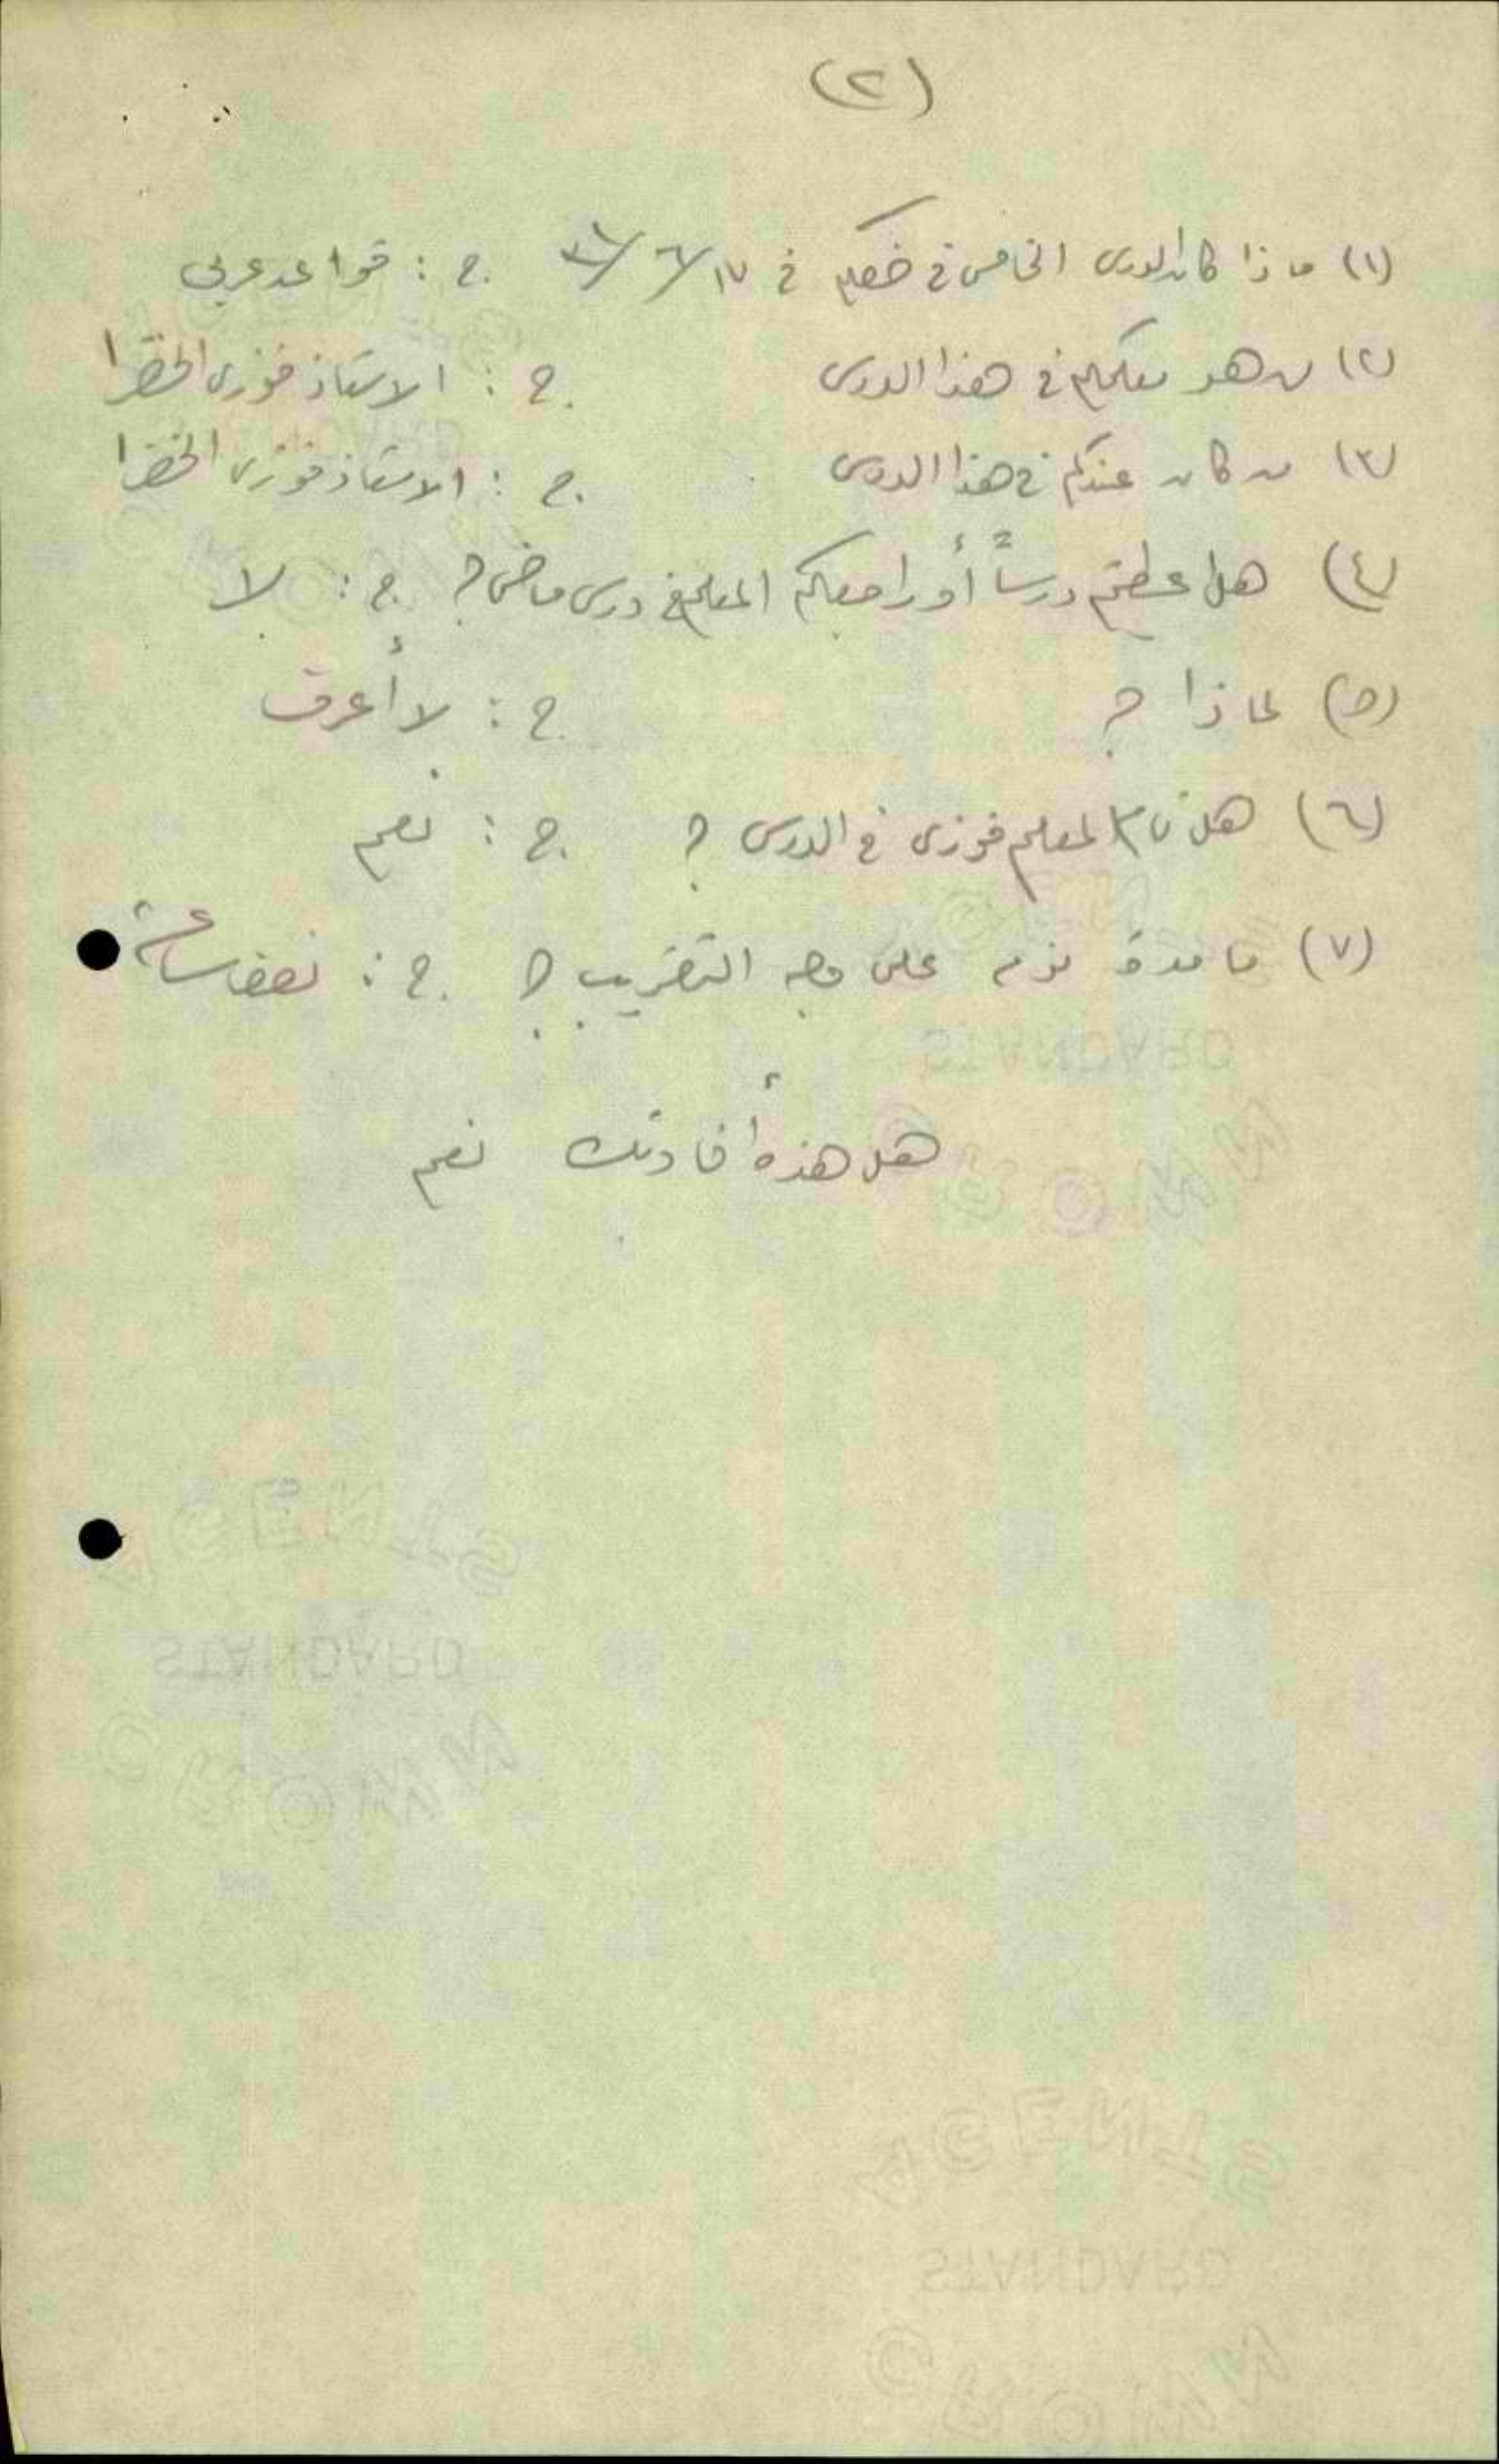 (٢)
(١) ماذا كان الدرس الخامس في صفكم في ١٧/٦/ ج : قواعد عربي
(٢) من هو معلمكم في هذا الدرس ج : الاستاذ فوزي الخضرا
(٣) من كان عندكم في هذا الدرس ج : الاستاذ فوزي الخضرا
(٤) هل اعطيتم درساً أو راجعكم المعلم في درس ماضي؟ ج : لا
(٥) لماذا ؟ ج : لا أعرف
(٦) هل نام المعلم فوزي في الدرس ؟ ج : نعم
(٧) ما مدة نومه على وجه التقريب ؟ ج : نصف ساعة
هل هذه أفادتك نعم
AGENTS
STANDARD
CROWN